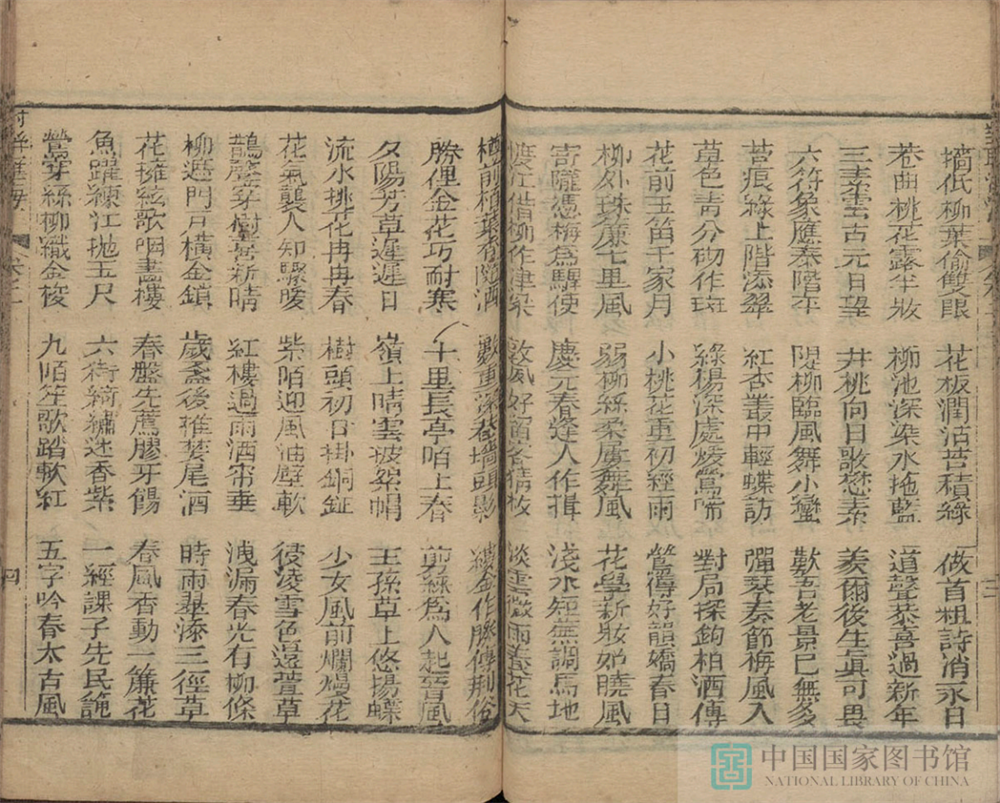 墻低柳葉偷雙眼　花板潤沾苔積綠　做首粗詩消永日
巷曲桃花露半妝　柳池深染水拖藍　道聲恭喜過新年
三素雲古元日望　井桃向日歌樊素　羨爾後生真可畏
六符象應泰階平　閏柳臨風舞小蠻　歎吾老景已無多
苔痕綠上階添翠　紅杏叢中輕蝶訪　彈琴奏節梅風入
草色青分砌作斑　綠楊深處煖鶯啼　對局探鉤柏酒傳
花前玉笛千家月　小桃花重初經雨　鶯得好韻嬌春日
柳外珠簾七里風　弱柳絲柔屢舞風　花學新妝妒曉風
寄隴憑梅為驛使　慶元春逢人作揖　淺水短蕪調馬地
渡江借柳作津梁　　淡雲微雨養花天
樽前柏葉香隨酒　數重深　墻頭影　縷金作勝傳荊俗
勝俚金花巧耐寒　十里長亭陌上春　剪綵為人起晉風
夕陽芳草遲遲日　嶺上晴雲披絮帽　王孫草上悠揚蝶
流水桃花冉冉春　樹頭初日掛銅鉦　少女風前爛熳花
花氣襲人知驟暖　紫陌迎風油壁軟　侵凌雪色還萱草
鵲聲穿樹喜新晴　紅樓過雨酒帘垂　洩漏春光有柳條
柳遮門戶橫金鎖　歲盞後推婪尾酒　時雨翠添三徑草
花擁絃歌咽畫樓　春盤先薦膠牙餳　春風香動一簾花
魚躍練江拋玉尺　六街綺繡迷香紫　一經課子先民範
鶯穿絲柳織金梭　九陌笙歌踏軟紅　五字吟春太古風
三
四
中国国家图书馆
NATIONAL LIBRARY OF CHINA